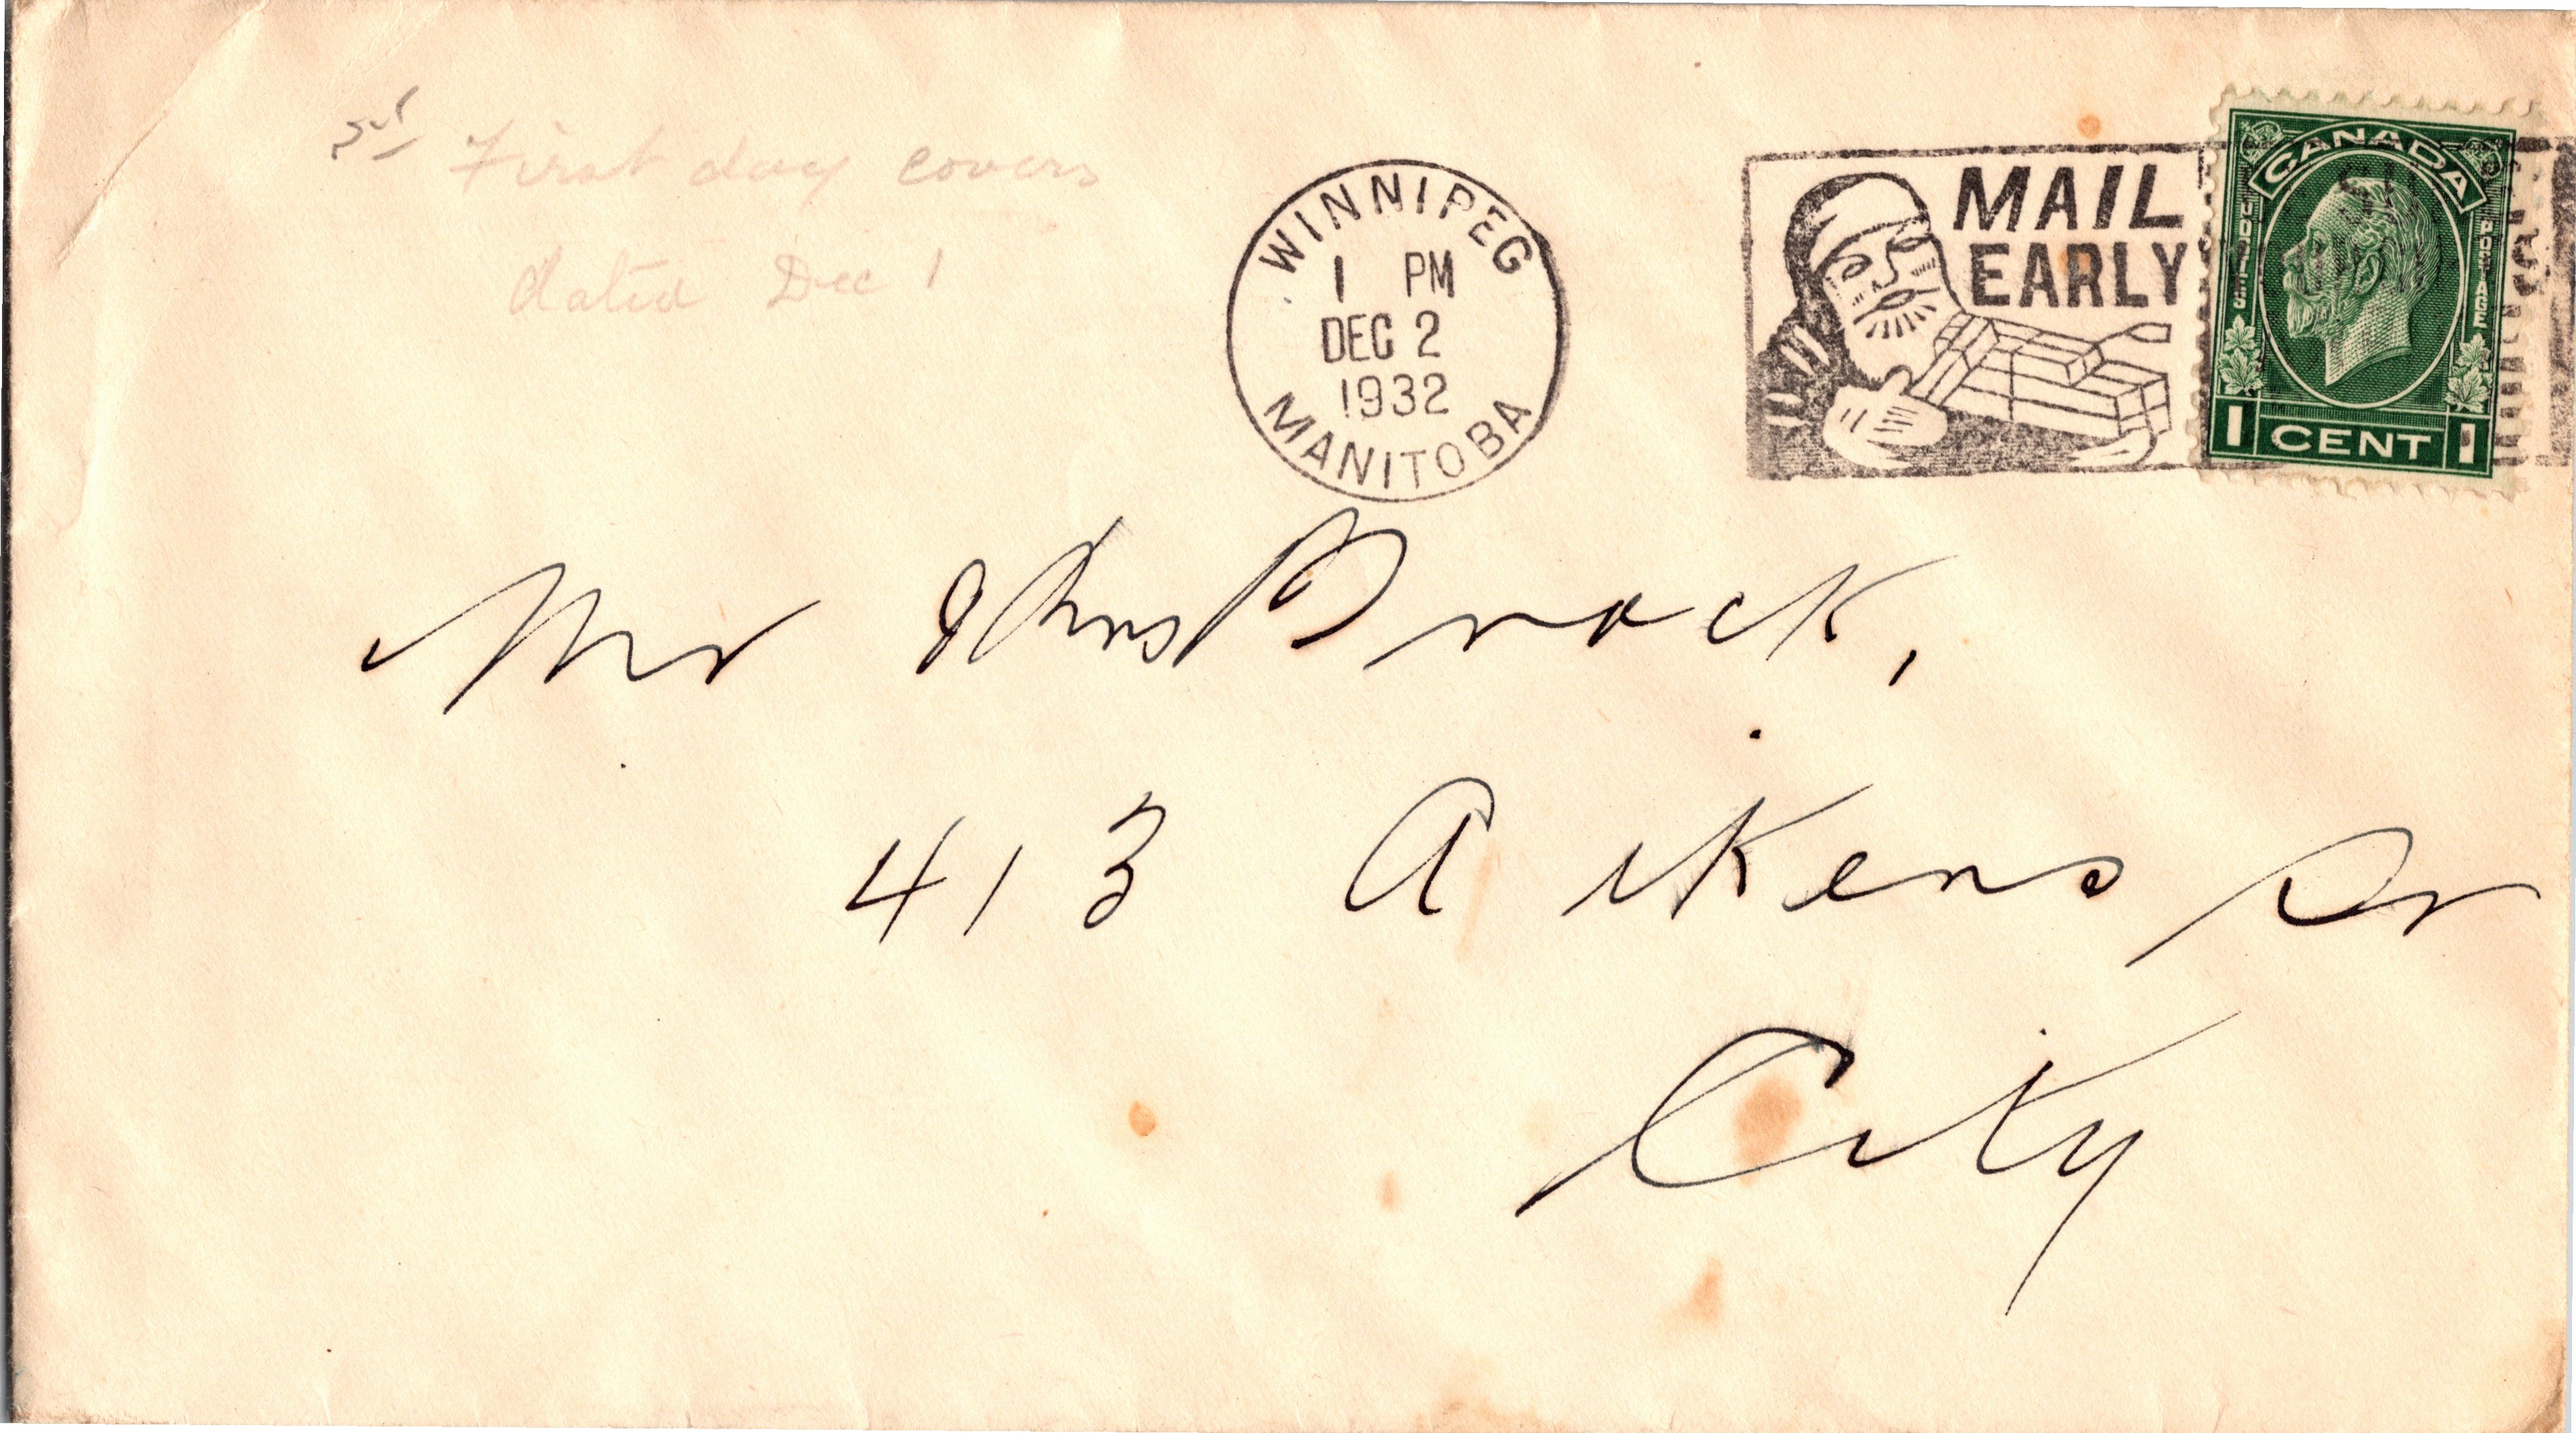 First day covers
dated Dec 1
WINNIPEG
1 PM
DEC 2
1932
MANITOBA
MAIL
EARLY
CANADA
POSTES
POSTAGE
1 CENT 1
Mr Brock,
413 Aikens St
City